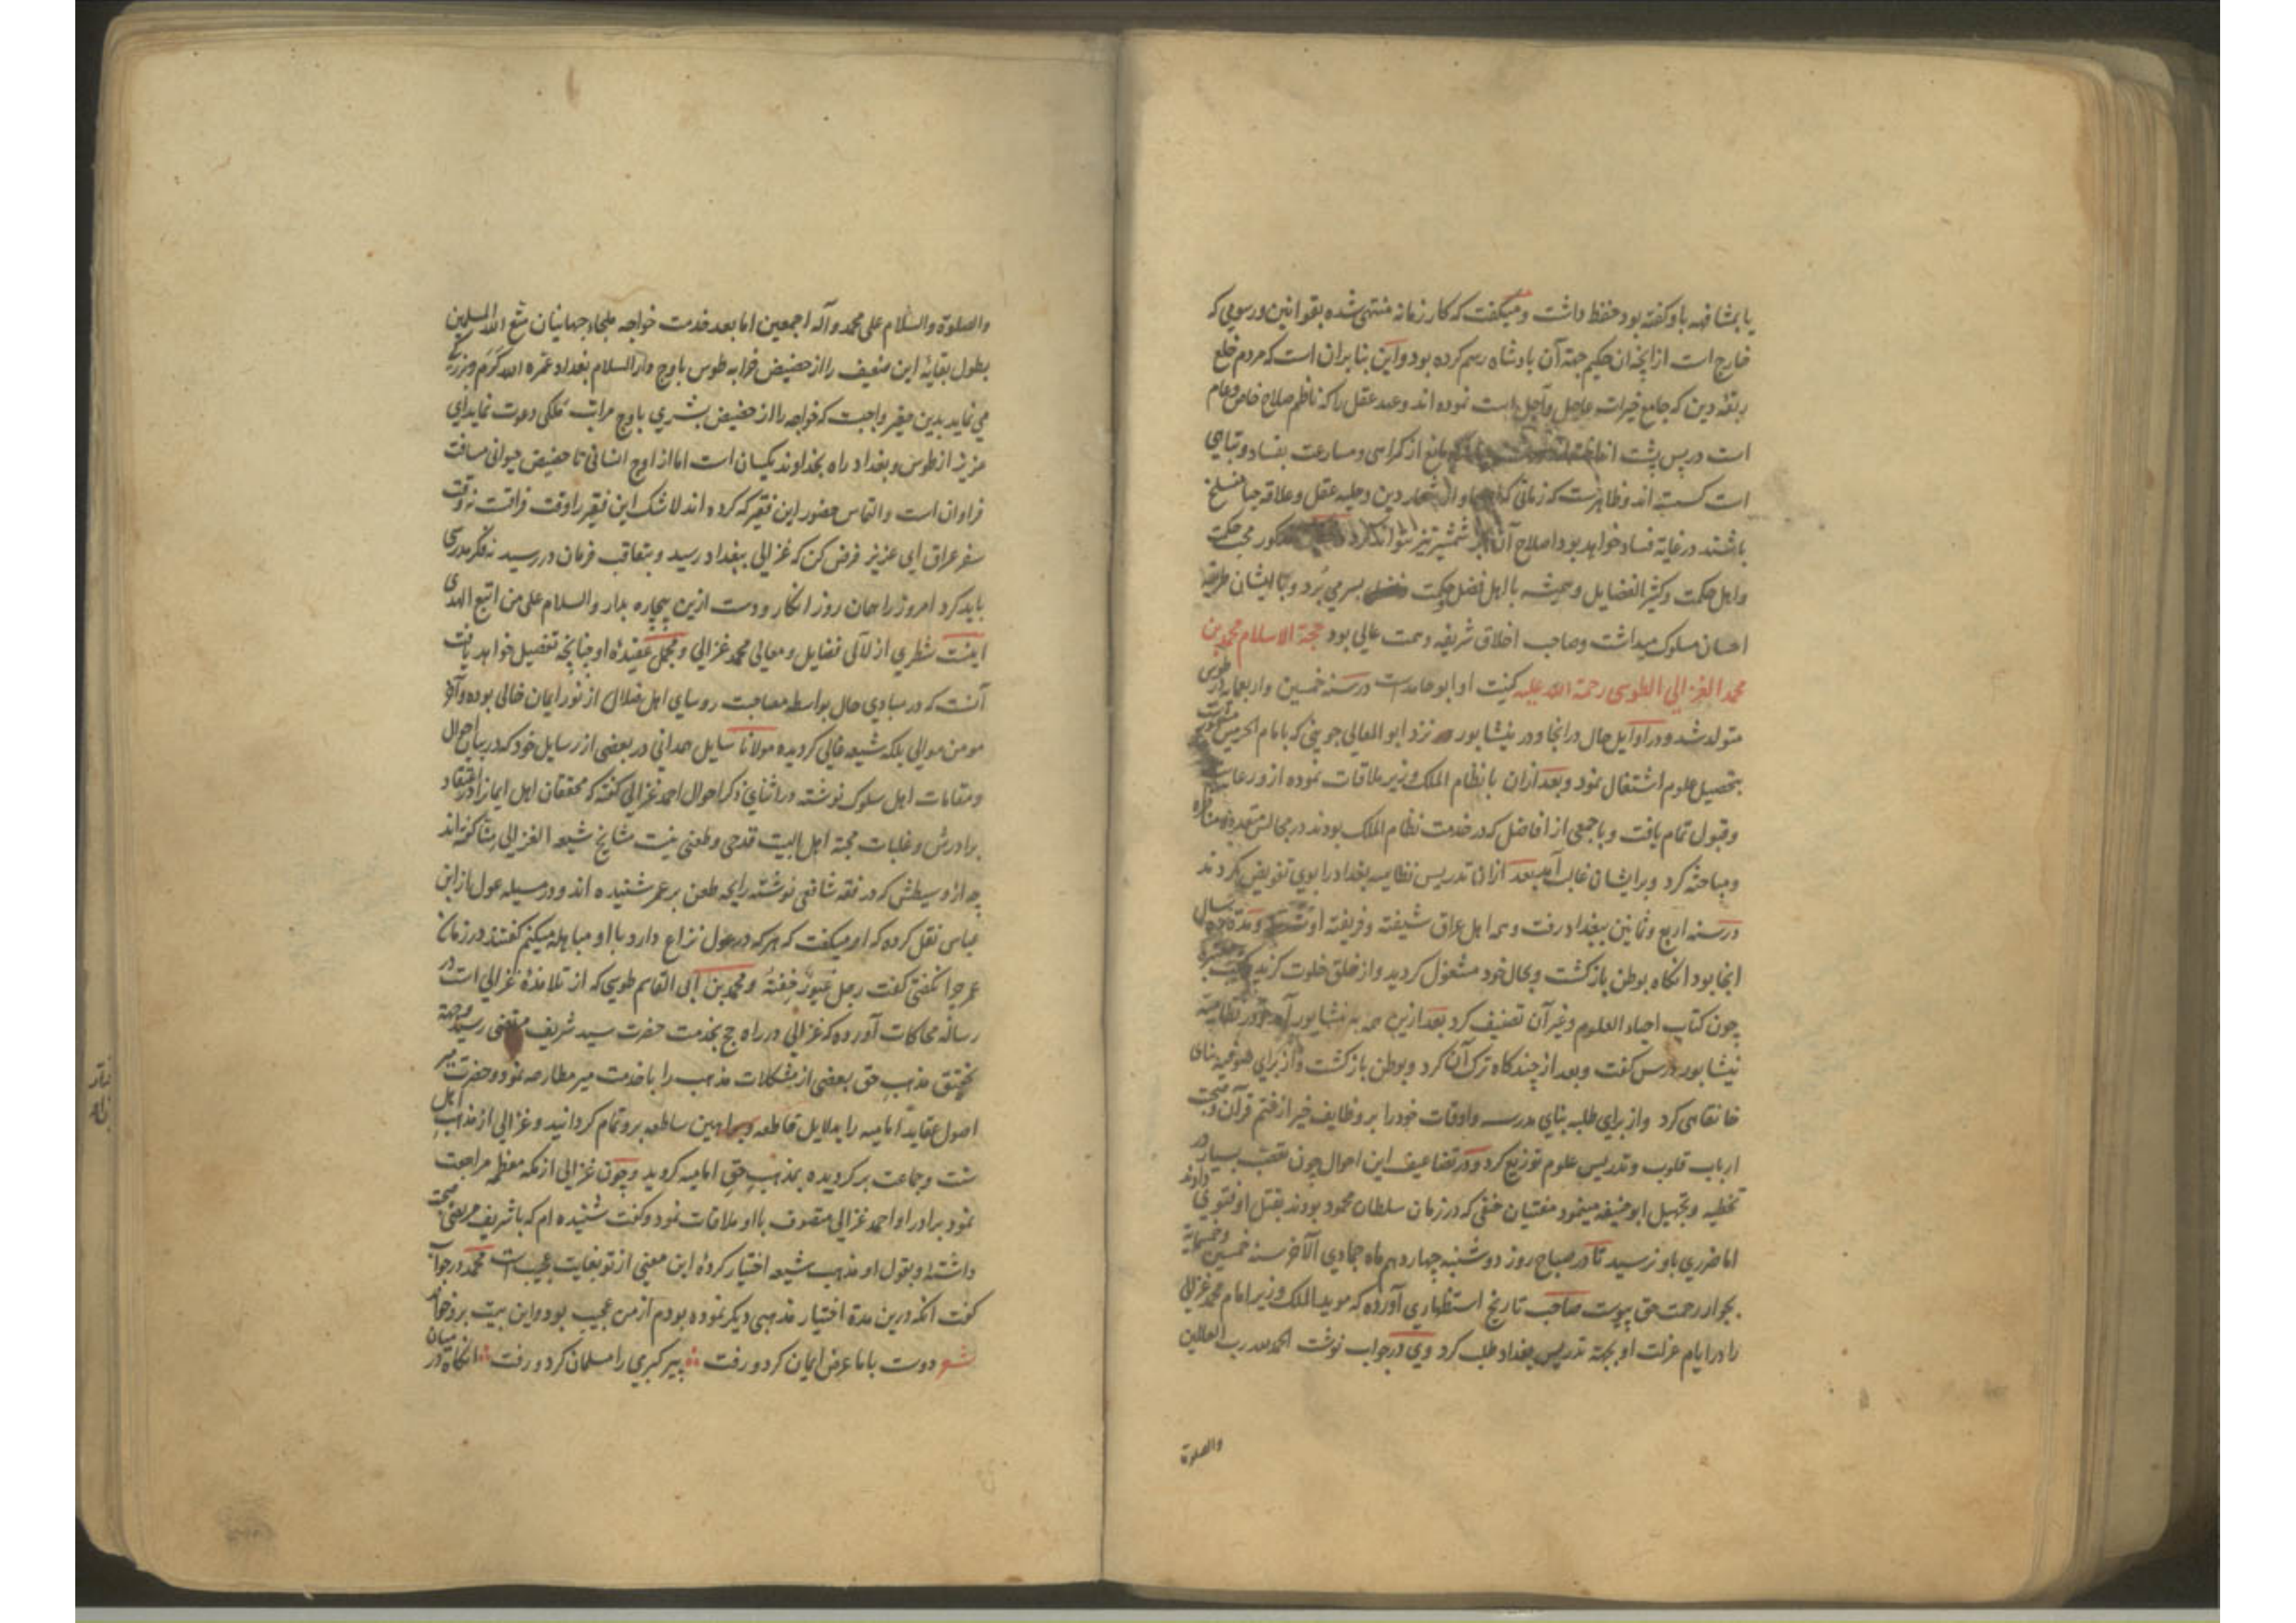 یا بمشافهه باو گفته بود حفظ داشت و میگفت که کار زمانه منتهی شده بقوانین و رسومی که
خارج است از آنچه ان حکیم جهة آن پادشاه رسم کرده بود و این بنا بران است که مردم خلع
ربقه دین که جامع خیرات عاجل و آجل است نموده اند و عبد عقل را که ناظم صلاح خاص و عام
است در پس پشت مانع از کمراهی و مسارعت بفساد و تباهی
است کسسته اند و ظاهرست که زمانی که شعار دین و حلیه عقل و علاقه حیا منسلخ
باشند در غایة فساد خواهد بود و اصلاح آن شمشیر تیز نتواند کرد محب حکمت
و اهل حکمت و کثیر الفضایل و همیشه با اهل فضل و حکمت بسر می برد و با ایشان طریقه
احسان مسلوک میداشت و صاحب اخلاق شریفه و همت عالی بود حجة الاسلام محمد بن
محمد الغزالی الطوسی رحمة الله علیه کنیت او ابو حامد است در سنه خمسین و اربعمایه در طوس
متولد شد و در اوایل حال در انجا و در نیشابور نزد ابو المعالی جوینی که بامام الحرمین مشهور است
بتحصیل علوم اشتغال نمود و بعد ازان با نظام الملک وزیر ملاقات نموده از و رعایت
و قبول تمام یافت و با جمعی از افاضل که در خدمت نظام الملک بودند در مجالس متعدده مناظره
و مباحثه کرد و بر ایشان غالب آمد بعد ازان تدریس نظامیه بغداد را بوی تفویض کردند
در سنه اربع و ثمانین ببغداد رفت و همه اهل عراق شیفته و فریفته او شدند و مدة ده سال
انجا بود انکاه بوطن بازکشت و بحال خود مشغول کردید و از خلق خلوت کزید کتب معتبره
چون کتاب احیاء العلوم و غیر آن تصنیف کرد بعد ازین همه به نیشابور آمد و در نظامیه
نیشابور درس کفت و بعد از چندکاه ترک آن کرد و بوطن بازکشت و از برای صوفیه بنای
خانقاهی کرد و از برای طلبه بنای مدرسه و اوقات خود را بر وظایف خیر از ختم قرآن و صحبت
ارباب قلوب و تدریس علوم توزیع کرد و در تضاعیف این احوال چون تعصب بسیار در
تخطیه و تجهیل ابو حنیفه مینمود مفتیان حنفی که در زمان سلطان محمود بودند بقتل او فتوی دادند
اما ضرری باو نرسید تا در صباح روز دوشنبه چهاردهم ماه جمادی الآخر سنه خمس و خمسمایة
بجوار رحمت حق پیوست صاحب تاریخ استظهاری آورده که موید الملک وزیر امام محمد غزالی
را در ایام عزلت او بجهة تدریس بغداد طلب کرد وی در جواب نوشت الحمد لله رب العالمین
والصلوة
والصلوة والسلام علی محمد وآله اجمعین اما بعد خدمت خواجه ملجاء جهانیان متع الله المسلمین
بطول بقایه این ضعیف را از حضیض خرابه طوس باوج دار السلام بغداد عمره الله کرم و بزرکی
می نماید بدین حقیر واجبست که خواجه را از حضیض بشری باوج مراتب ملکی دعوت نماید ای
عزیز از طوس و بغداد راه بخداوند یکسان است اما از اوج انسانی تا حضیض حیوانی مسافت
فراوان است و التماس حضور این فقیر که کرده اند لاشک این فقیر را وقت فراقت نه وقت
سفر عراق ای عزیز فرض کن که غزالی ببغداد رسید و متعاقب فرمان در رسید نه فکر مدرسی
باید کرد امروز را همان روز انکار و دست ازین بیچاره بدار والسلام علی من اتبع الهدی
اینست شطری از لآلی فضایل و معالی محمد غزالی و مجمل عقیدهٔ او چنانچه تفصیل خواهد یافت
آنست که در مبادی حال بواسطه مصاحبت روسای اهل ضلال از نور ایمان خالی بوده و آخر
مومن موالی بلکه شیعه غالی کردیده مولانا سایل همدانی در بعضی از رسایل خود که در بیان احوال
و مقامات اهل سلوک نوشته در اثنای ذکر احوال احمد غزالی کفته که محققان اهل ایمان را در اعتقاد
برادرش و غلبات محبة اهل البیت قدحی و طعنی نیست مشایخ شیعه الغزالی منا کفته اند
چه از وسیطش که در فقه شافعی نوشته رایحه طعن بر عمر شنیده اند و در مسیله عول از ابن
عباس نقل کرده که او میکفت که هر که در عول نزاع دارد با او مباهله میکنم کفتند در زمان
عمر چرا نکفتی کفت رجل غیور خفته و محمد بن ابی القاسم طوسی که از تلامذهٔ غزالی است در
رساله محاکات آورده که غزالی در راه حج بخدمت حضرت سید شریف مرتضی رسید و جهة
تحقیق مذهب حق بعضی از مشکلات مذهب را با خدمت میر مطارحه نمود و حضرت میر
اصول عقاید امامیه را بدلایل قاطعه و براهین ساطعه برو تمام کردانید و غزالی از مذهب اهل
سنت و جماعت برکردیده بمذهب حق امامیه کروید و چون غزالی از مکه معظمه مراجعت
نمود برادر او احمد غزالی متصوف با او ملاقات نمود و کفت شنیده ام که با شریف مرتضی صحبت
داشته و بقول او مذهب شیعه اختیار کردهٔ این معنی از تو بغایت عجیب است محمد در جواب
کفت آنکه درین مدة اختیار مذهبی دیکر نموده بودم از من عجیب بود و این بیت برو خواند
شعر دوست با ما عرض ایمان کرد و رفت پیر کبری را مسلمان کرد و رفت انکاه در میان